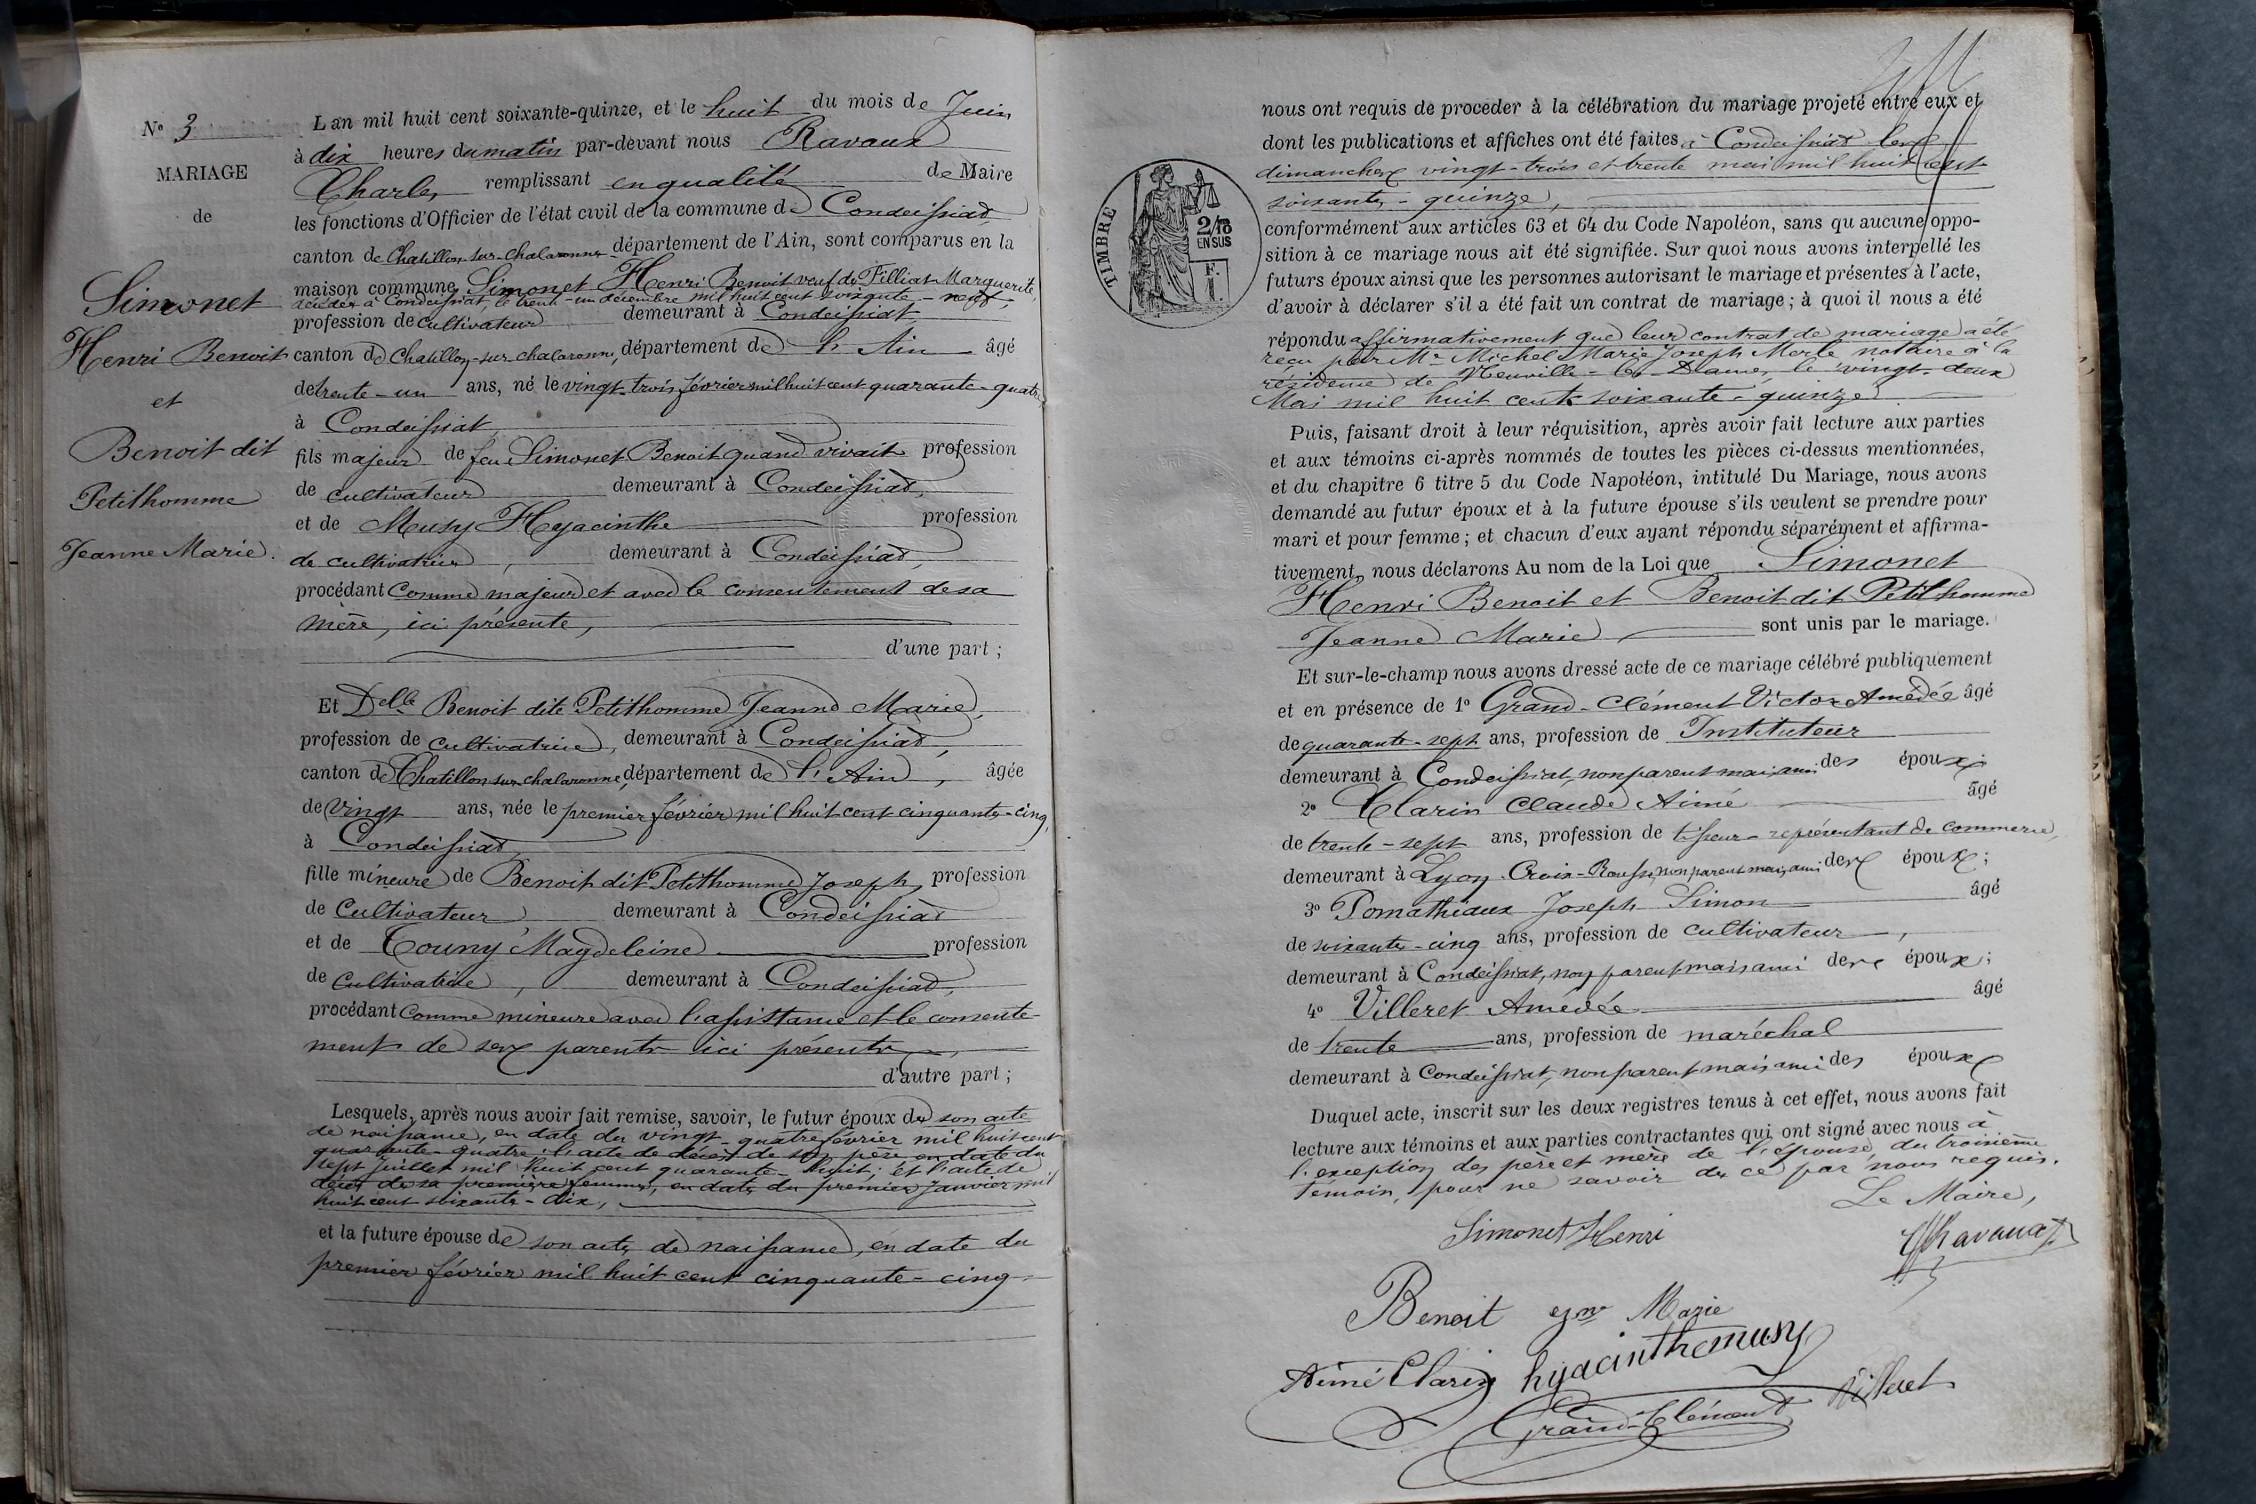 N° 3
MARIAGE
de
Simonet
Henri Benoit
et
Benoit dit
Petithomme
Jeanne Marie.
L'an mil huit cent soixante-quinze, et le huit du mois de Juin
à dix heures du matin par-devant nous Ravaux
Charles remplissant en qualité de Maire
les fonctions d'Officier de l'état civil de la commune de Condeissiat
canton de Chatillon-sur-Chalaronne département de l'Ain, sont comparus en la
maison commune, Simonet Henri Benoit veuf de Filliat Marguerite,
décédée à Condeissiat, le trente-un décembre mil huit cent soixante-neuf,
profession de cultivateur demeurant à Condeissiat
canton de Chatillon-sur-chalaronne, département de l'Ain âgé
de trente-un ans, né le vingt-trois février mil huit cent quarante-quatre
à Condeissiat,
fils majeur de feu Simonet Benoit quand vivait profession
de cultivateur demeurant à Condeissiat,
et de Musy Hyacinthe profession
de cultivatrice, demeurant à Condeissiat,
procédant comme majeur et avec le consentement de sa
mère, ici présente,
d'une part ;
Et Delle Benoit dite Petithomme Jeanne Marie,
profession de cultivatrice, demeurant à Condeissiat,
canton de Chatillon sur chalaronne, département de l'Ain, âgée
de vingt ans, née le premier février mil huit cent cinquante-cinq,
à Condeissiat,
fille mineure de Benoit dit Petithomme Joseph, profession
de cultivateur demeurant à Condeissiat
et de Couny Magdeleine profession
de cultivatrice, demeurant à Condeissiat,
procédant comme mineure avec l'assistance et le consente-
ment de ses parents ici présents,
d'autre part ;
Lesquels, après nous avoir fait remise, savoir, le futur époux de son acte
de naissance, en date du vingt-quatre février mil huit cent
quarante-quatre ; l'acte de décès de son père en date du
sept juillet mil huit cent quarante-huit ; et l'acte de
décès de sa première femme, en date du premier janvier mil
huit cent soixante-dix,
et la future épouse de son acte de naissance, en date du
premier février mil huit cent cinquante-cinq
nous ont requis de procéder à la célébration du mariage projeté entre eux et
dont les publications et affiches ont été faites à Condeissiat les
dimanches vingt-trois et trente mai mil huit cent
soixante-quinze,
TIMBRE
2/10
EN SUS
F.
1
conformément aux articles 63 et 64 du Code Napoléon, sans qu'aucune oppo-
sition à ce mariage nous ait été signifiée. Sur quoi nous avons interpellé les
futurs époux ainsi que les personnes autorisant le mariage et présentes à l'acte,
d'avoir à déclarer s'il a été fait un contrat de mariage ; à quoi il nous a été
répondu affirmativement que leur contrat de mariage a été
reçu par Me Michel Marie Joseph Merle notaire à la
résidence de Neuville-les-Dames, le vingt-deux
Mai mil huit cent soixante-quinze.
Puis, faisant droit à leur réquisition, après avoir fait lecture aux parties
et aux témoins ci-après nommés de toutes les pièces ci-dessus mentionnées,
et du chapitre 6 titre 5 du Code Napoléon, intitulé Du Mariage, nous avons
demandé au futur époux et à la future épouse s'ils veulent se prendre pour
mari et pour femme ; et chacun d'eux ayant répondu séparément et affirma-
tivement, nous déclarons Au nom de la Loi que Simonet
Henri Benoit et Benoit dit Petithomme
Jeanne Marie sont unis par le mariage.
Et sur-le-champ nous avons dressé acte de ce mariage célébré publiquement
et en présence de 1° Grand-Clément Victor Amédée âgé
de quarante-sept ans, profession de Instituteur
demeurant à Condeissiat, non parent mais ami des époux ;
2° Clarin Claude Aimé âgé
de trente-sept ans, profession de tisseur-représentant de commerce,
demeurant à Lyon-Croix-Rousse, non parent mais ami des époux ;
3° Pomathiaux Joseph Simon âgé
de soixante-cinq ans, profession de cultivateur,
demeurant à Condeissiat, non parent mais ami des époux ;
4° Villeret Amédée âgé
de trente ans, profession de maréchal
demeurant à Condeissiat, non parent mais ami des époux
Duquel acte, inscrit sur les deux registres tenus à cet effet, nous avons fait
lecture aux témoins et aux parties contractantes qui ont signé avec nous à
l'exception des père et mère de l'épouse, du troisième
témoin, pour ne savoir de ce par nous requis.
Le Maire,
Simonet Henri
Ravaux
Benoit Marie
Aimé Clarin hyacinthe musy
Grand-Clément Villeret